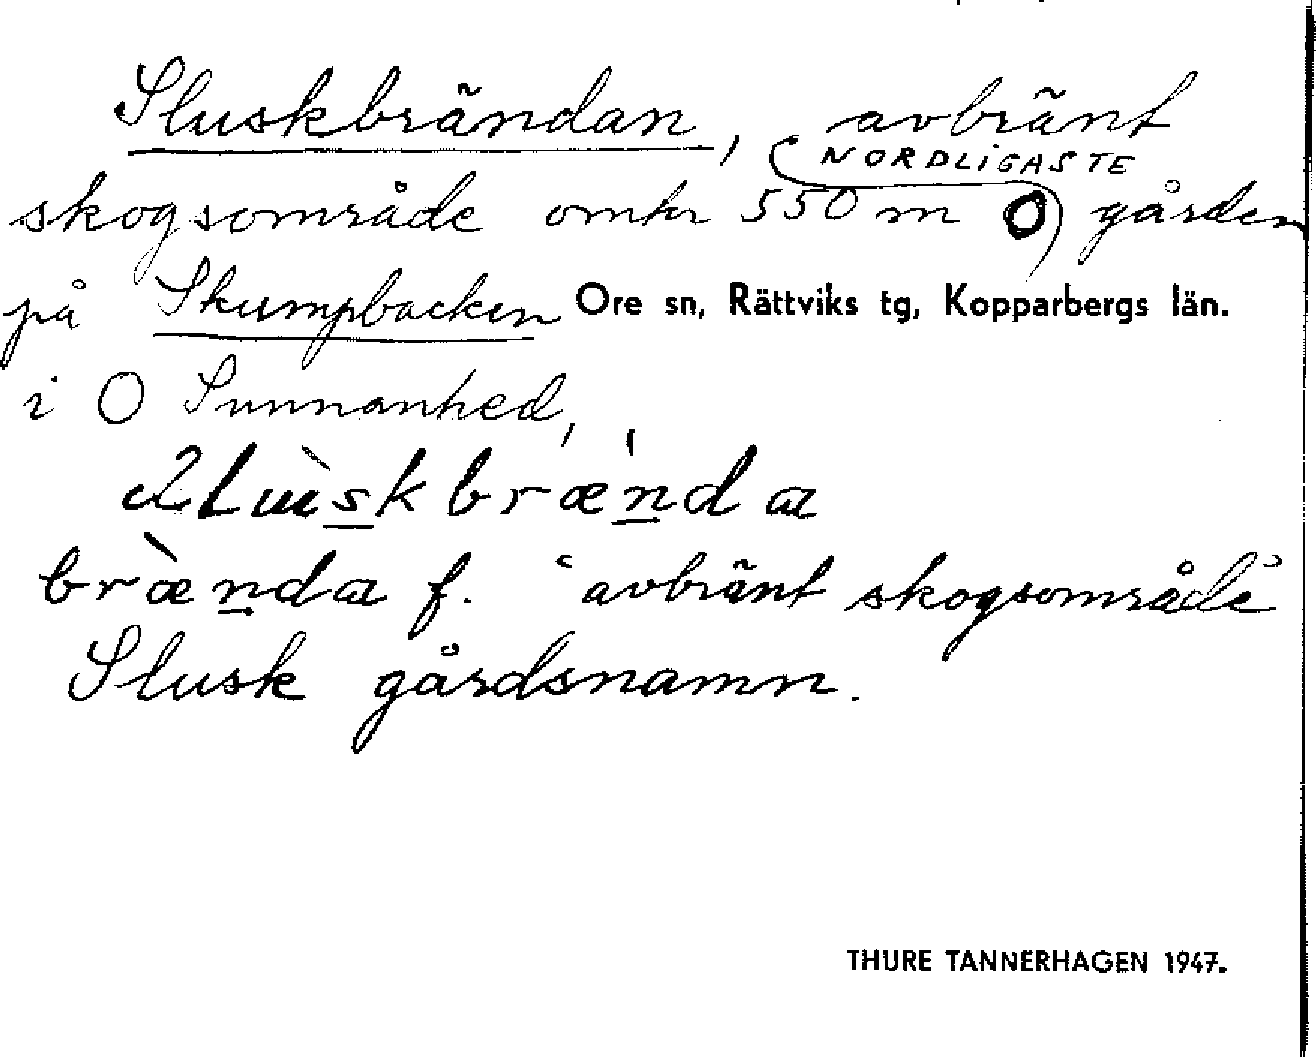 Sluskbrändan, avbränt
NORDLIGASTE
skogsområde omkr 550 m O gården
på Skumpbacken Ore sn, Rättviks tg, Kopparbergs län.
i O Sunnanhed,
brænda f. "avbränt skogsområde"
Slusk gårdsnamn.
THURE TANNERHAGEN 1947.